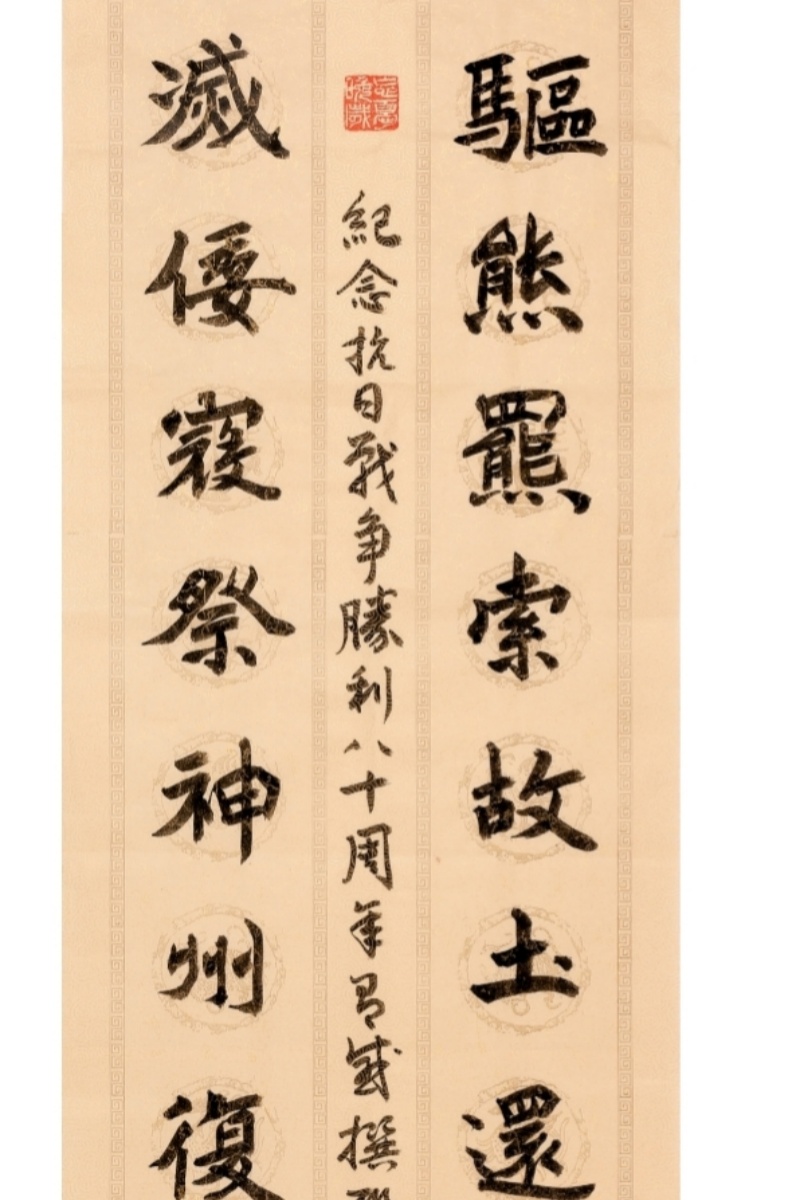 驅熊羆索故土還
紀念抗日戰争勝利八十周年有感撰
滅倭寇祭神州復